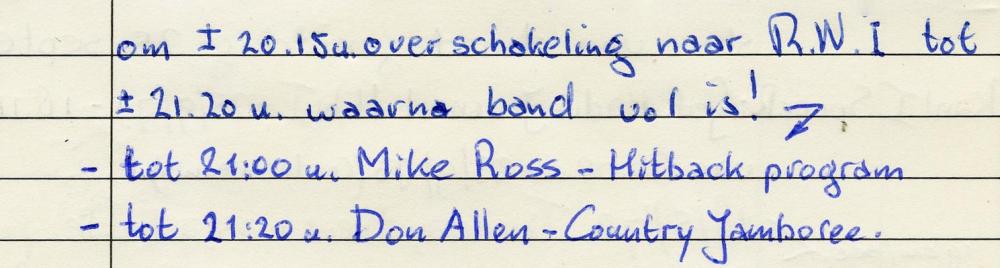 om ± 20.15u. overschakeling naar R.W.I tot
± 21.20 u. waarna band vol is!
- tot 21:00 u. Mike Ross - Hitback program
- tot 21:20 u. Don Allen - Country Jamboree.